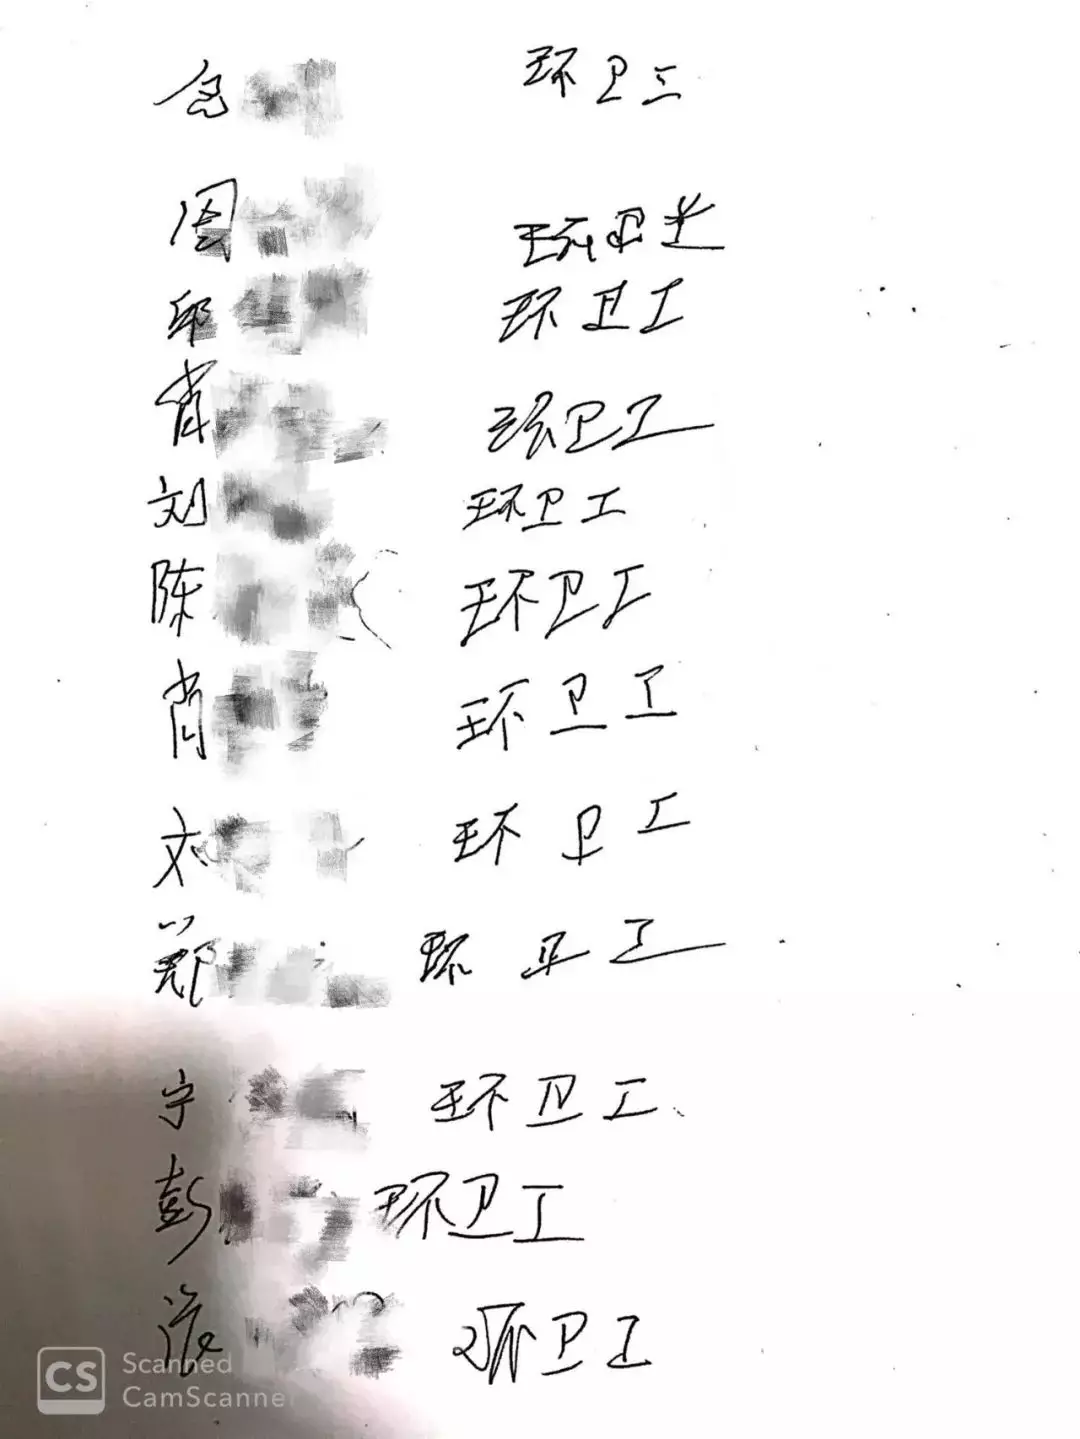 环卫工
周 环卫工
邱 环卫工
肖 环卫工
刘 环卫工
陈 环卫工
肖 环卫工
刘 环卫工
郑 环卫工
宁 环卫工
彭 环卫工
环卫工
CS Scanned
CamScanner